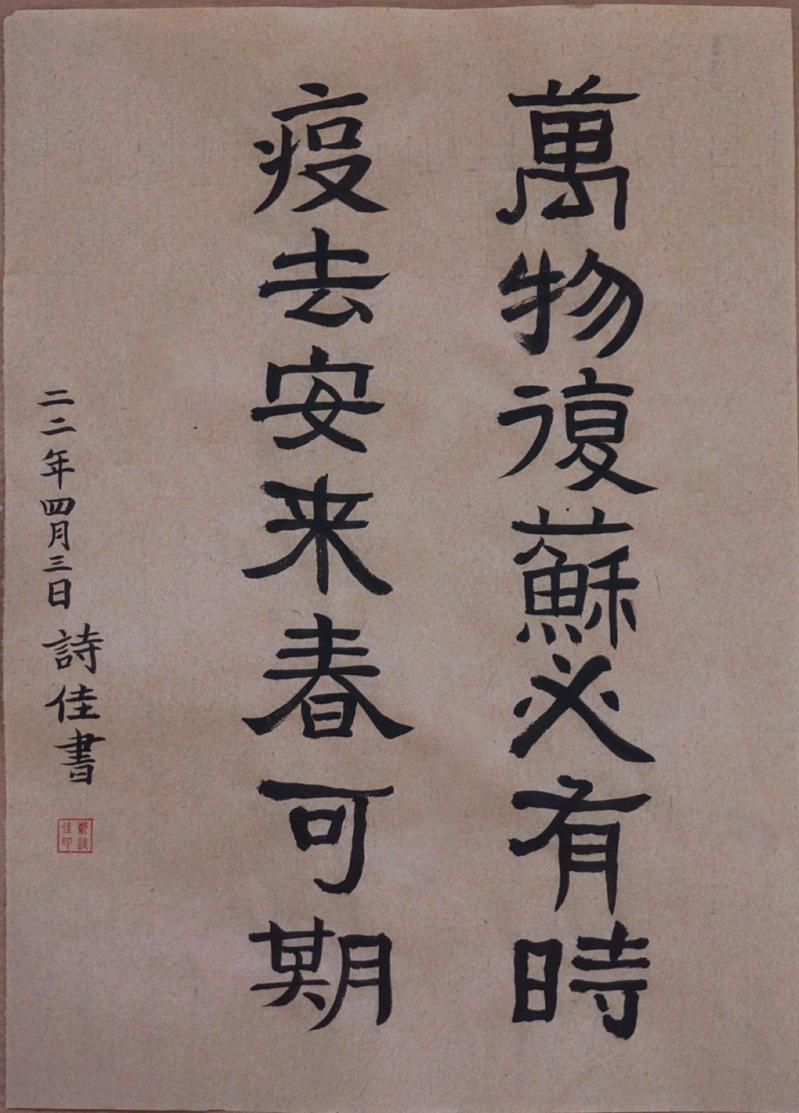 萬物復蘇必有時
疫去安来春可期
二二年四月三日 詩佳書